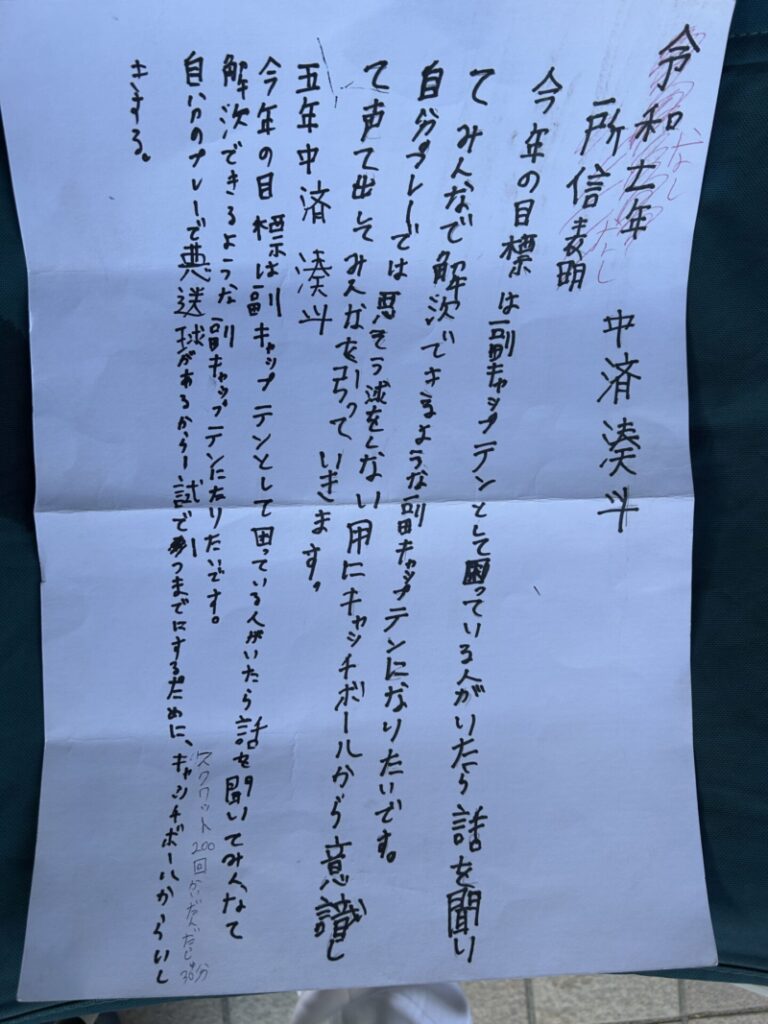 令和七年
所信表明
中済湊斗
今年の目標は副キャップテンとして困っている人がいたら話を聞い
てみんなで解決できるような副キャップテンになりたいです。
自分プレーでは悪そう球をしない用にキャッチボールから意識し
て声て出してみんなを引っていきます。
五年中済湊斗
今年の目標は副キャップテンとして困っている人がいたら話を聞いてみんなて
解決できるような副キャップテンになりたいです。
自分のプレーで悪送球があるから一試で一つまでにするために、キャッチボールからいし
きする。
スクワット200回
なし
なし